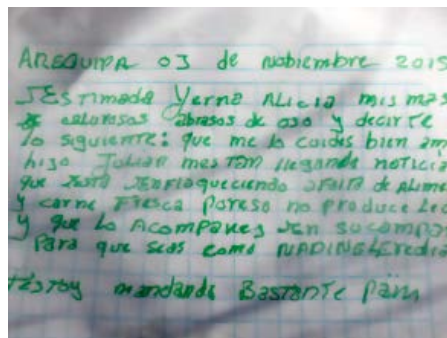 AREQUIPA 03 de Nobiembre 2015
JEstimada Yerna Alicia mis mas
calurosos abrasos de oso y decirte
lo siguiente: que me lo cuides bien ami
hijo Julian mestan llegando noticia
que Jesta JEnflaqueciendo Jfalta de Alime
y carne Fresca Poreso no produce Lec
y que lo Acompañes Jen sucompas
Para que seas como NADINE LEredia
JEstoy mandando Bastante Pam